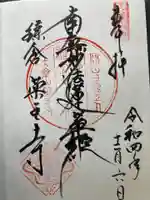 奉拝
令和四年十二月六日
南無妙法蓮華経
鎌倉 薬王寺